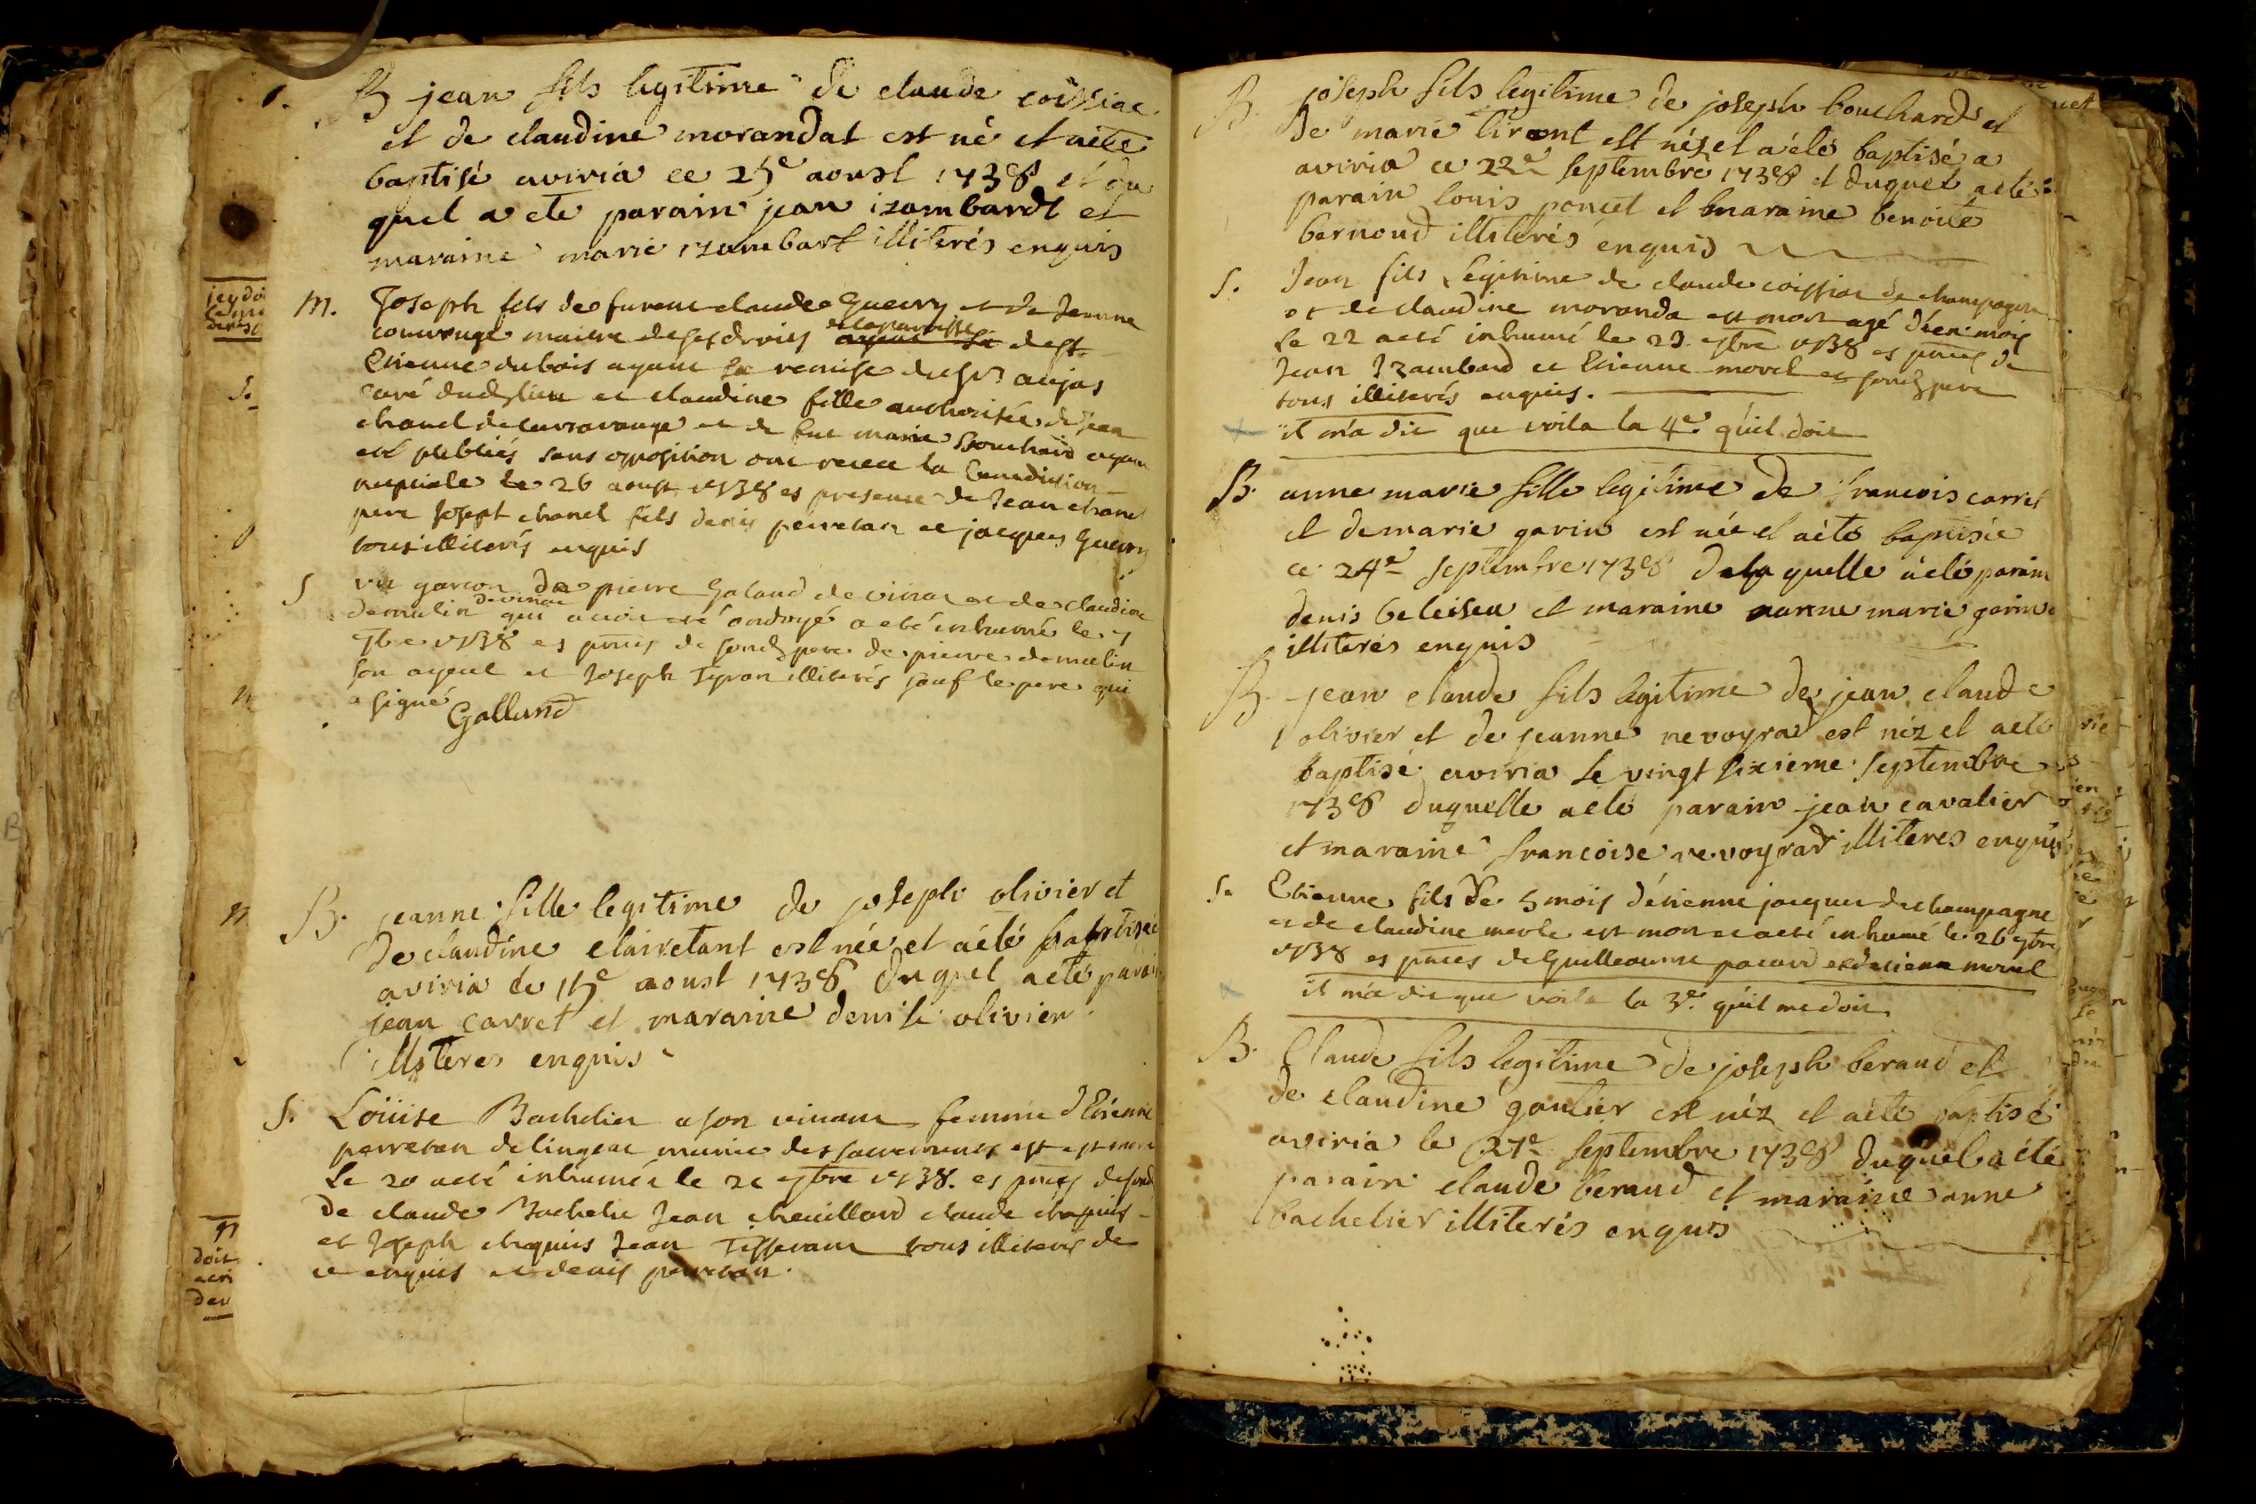 B jean fils legitime de claude coissiac
et de claudine morandat est né et aété
baptisé aviria ce 25e aoust 1738 et du
quel a eté parain jean izambardt et
maraine marie izambart illiterés enquis
M. Joseph fils de furent claude Guerry et de Jeanne
maitre de ses droits de la paroisse de st
Etienne dubois ayant la remise du sr aujas
curé dud lieu et claudine fille authorisée de jean
chanel de et de fut marie Bouchard ayant
eté plubliés sans opposition ont receu la benediction
nuptiale le 26 aoust 1738 es presence de Jean chanel
pere Josept chanel fils denis perretan et jacques Guerry
tous illiterés enquis
S un garcon de pierre Galand de viriac et de claudine
demulin de viriac qui avoit eté ondoyé a eté inhumé le 7
7bre 1738 es pnces de sondt pere de pierre demulin
son ayeul et Joseph Tyron illiterés sauf le pere qui
a signé
Galland
B. jeanne fille legitime de joseph olivier et
de claudine clairetant est née et aété baptisée
aviria le 15e aoust 1738 duquel aeté parain
jean carret et maraine denise olivier
illiteres enquis
S. Loüise Bachelier a son vivant femme d'Etienne
perretan de lingeac munie des sacrements est est morte
le 20 aeté inhumée le 21 7bre 1738. es pnces desond
de claude Bachelie Jean cheuillard claude chapuis
et Joseph chapuis Jean Tisserant tous illiterés de
ce enquis et denis perretan.
B. joseph fils legitime de joseph bouchard et
de marie tiront est néz et aélé baptisé a
aviria ce 22e septembre 1738 et duquel aeté
parain louis poncet et maraine benoite
bernoud illiterés enquis
S. Jean fils legitime de claude coissiat de champagne
et de claudine moranda est mort agé d'en. mois
le 22 aeté inhumé le 23 7bre 1738 es pnces de
Jean Izambard et Etienne morel et sondt pere
tous illiterés enquis.
il m'a dit que voila la 4e. qu'il doit
B. anne marie fille legitime de francois carret
et de marie gavin est née et aété baptisée
ce 24e septembre 1738 de la quelle aété parain
denis beleiseu et maraine anne marie garin
illiterés enquis
B. jean claude fils legitime de jean claude
olivier et de jeanne nevoyrad est néz et aeté
baptisé aviria le vingt sixieme septembre
1738 duquelle aeté parain jean cavalier
et maraine francoise nevoyrad illiteres enquis
S. Etienne fils de 5 mois d'étienne jacquet de champagne
et de claudine merle est mort et aeté inhumé le 26 7bre
1738 es pnces de Guilleaume pacard et d'etienne morel
il m'a dit que voila la 3e. qu'il me doit
B. Claude fils legitime de joseph beraud et
de claudine goutier est néz et aété baptisé
aviria le 27e septembre 1738 duquel a été
parain claude beraud et maraine anne
bachelier illiterés enquis